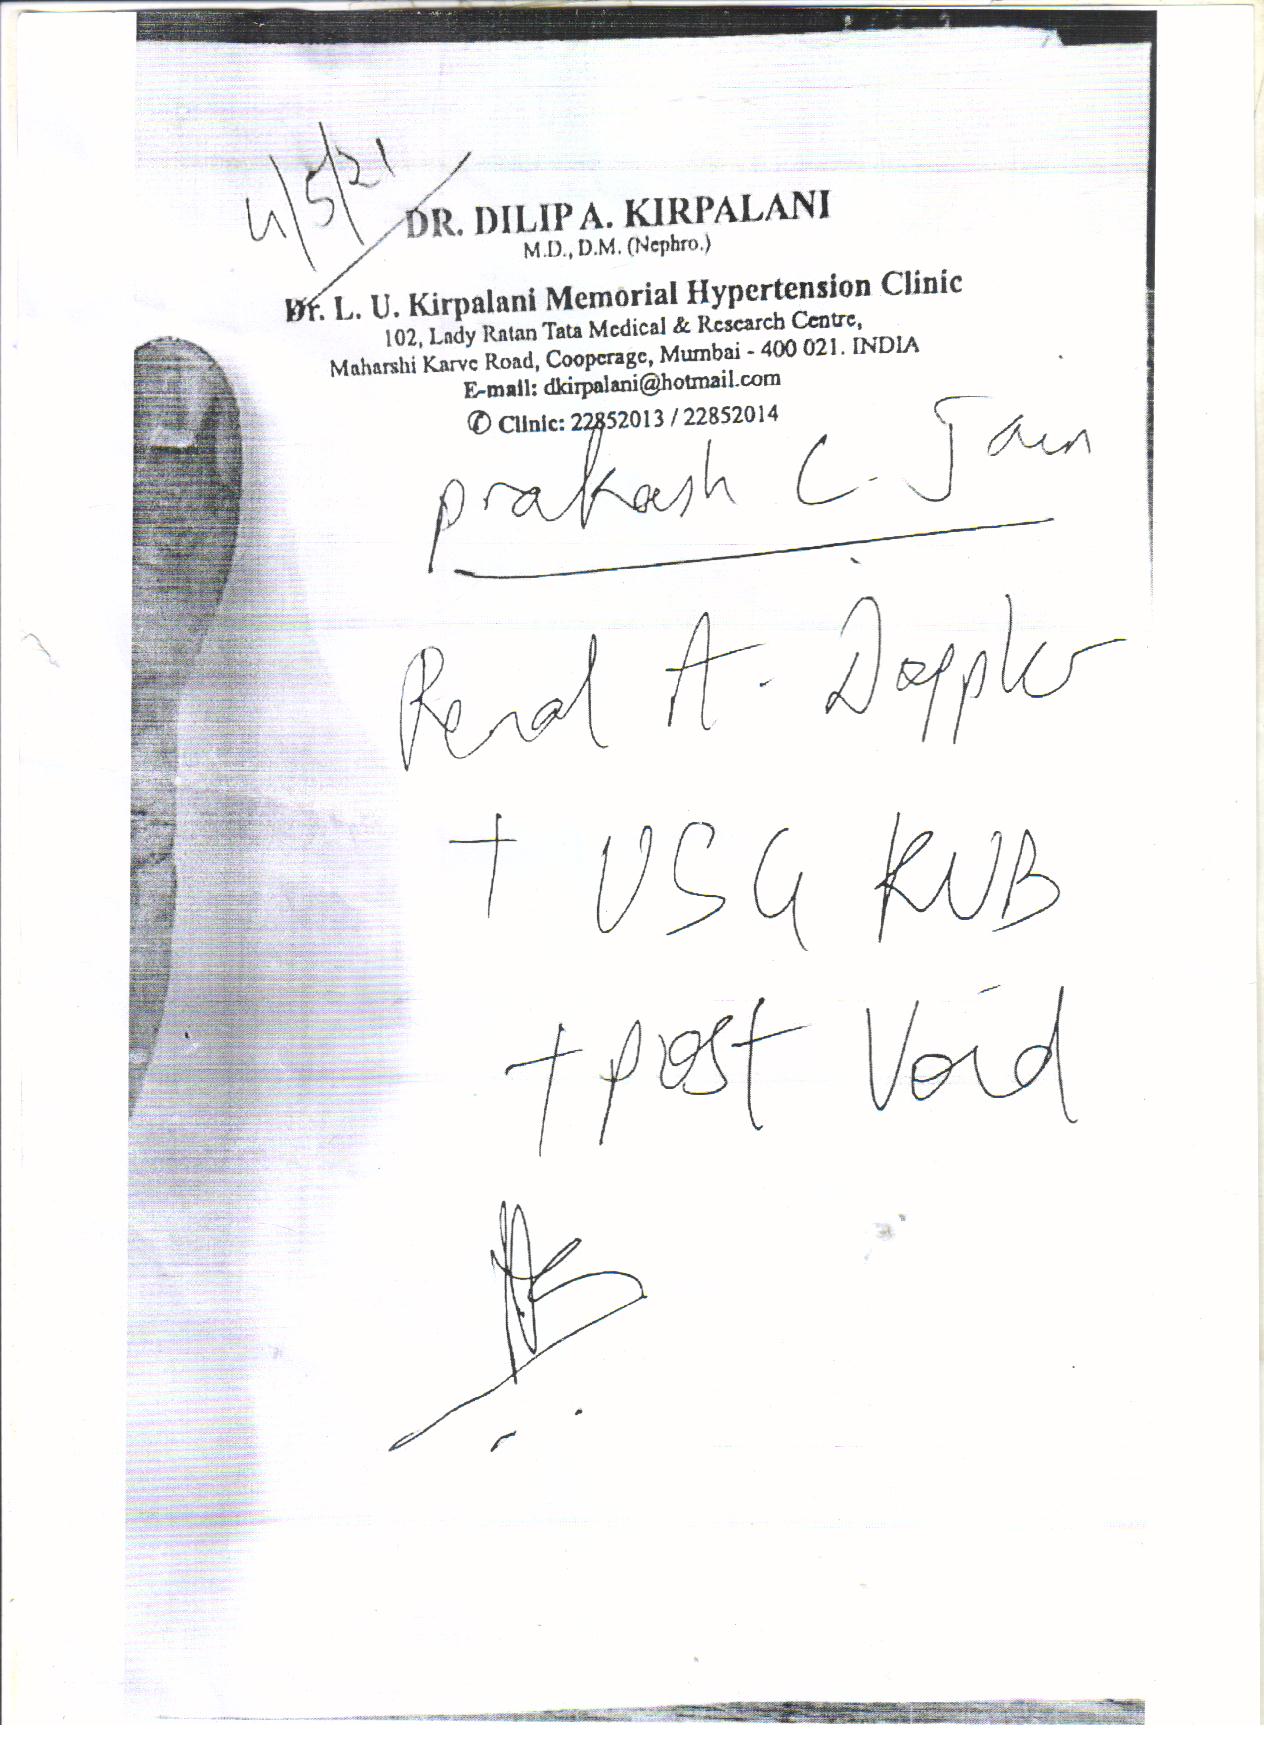 4/5/21
DR. DILIP A. KIRPALANI
M.D., D.M. (Nephro.)
Dr. L. U. Kirpalani Memorial Hypertension Clinic
102, Lady Ratan Tata Medical & Research Centre,
Maharshi Karve Road, Cooperage, Mumbai - 400 021. INDIA
E-mail: dkirpalani@hotmail.com
✆ Clinic: 22852013 / 22852014
Prakash C. Jain
Renal A. Doppler
+ USG KUB
+ Post Void